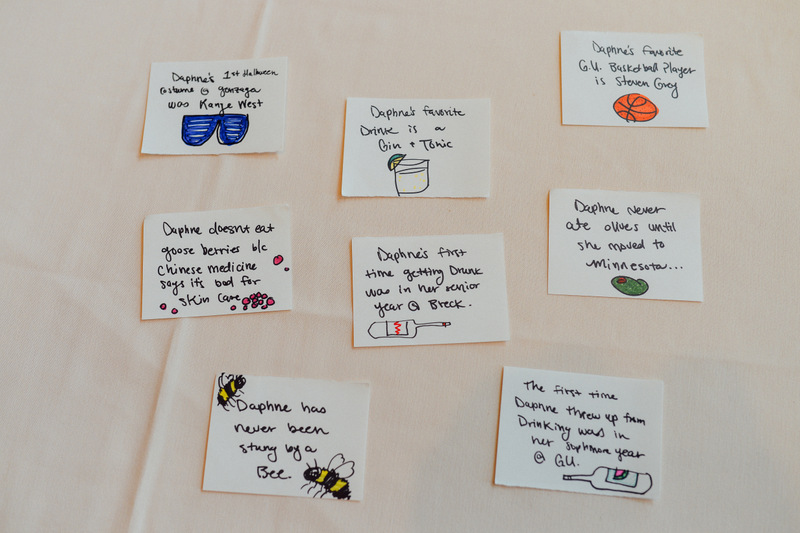 Daphne's 1st Halloween
Costume @ gonzaga
was Kanye West
Daphne's favorite
Drink is a
Gin + Tonic
Daphne's favorite
G.U. Basketball Player
is Steven Grey
Daphne doesn't eat
goose berries b/c
Chinese medicine
says it's bad for
skin care
Daphne's first
time getting Drunk
was in her senior
year @ Breck.
Daphne never
ate olives until
she moved to
Minnesota...
Daphne has
never been
stung by a
Bee.
The first time
Daphne threw up from
Drinking was in
her sophmore year
@ GU.